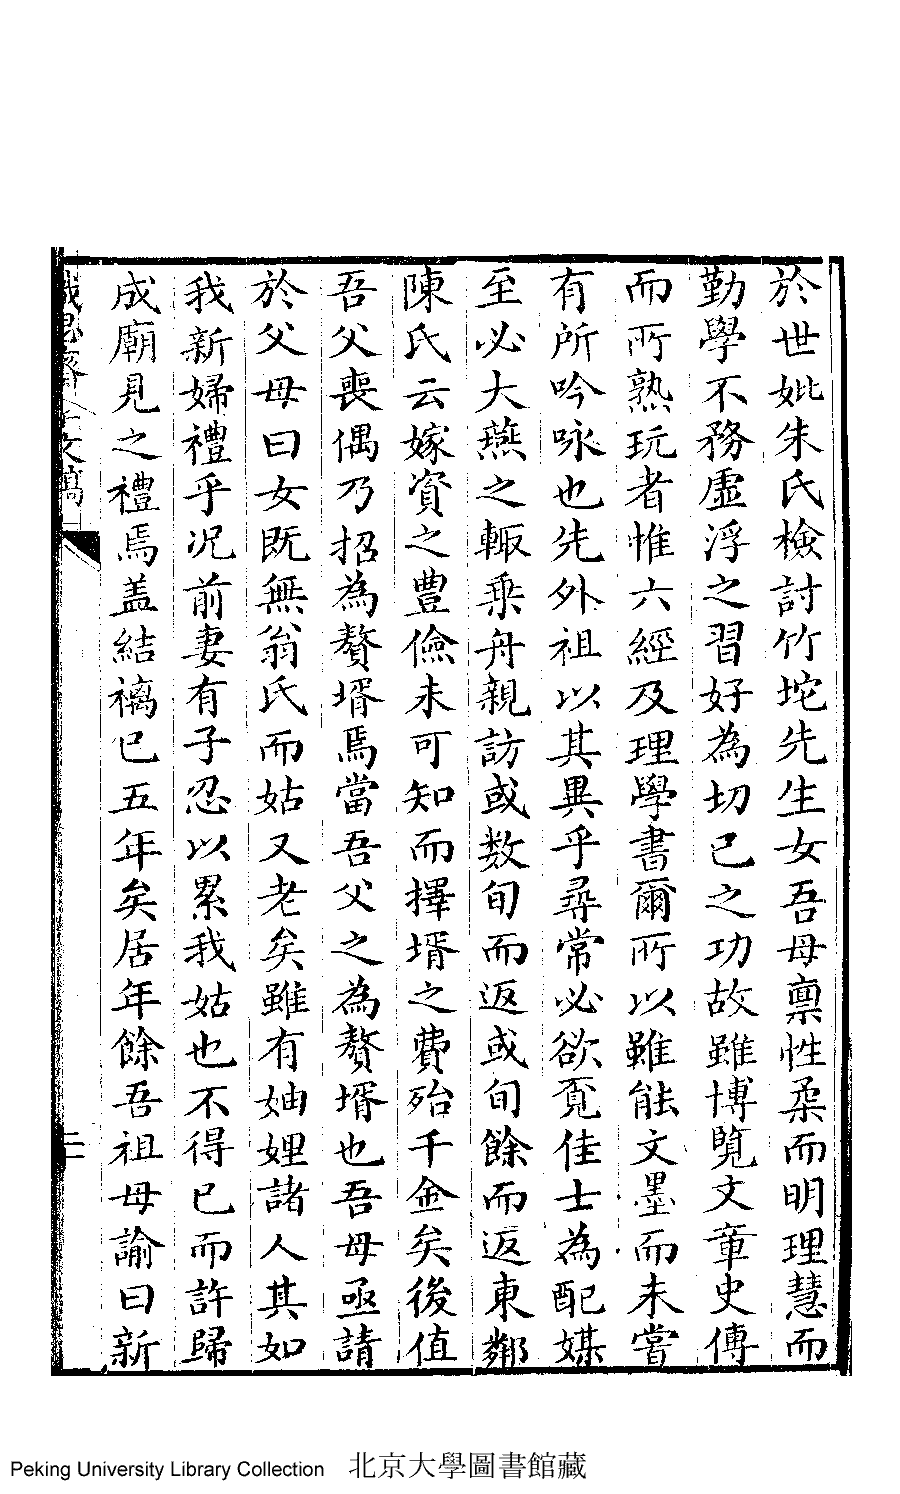 於世妣朱氏檢討竹坨先生女吾母禀性柔而明理慧而
勤學不務虛浮之習好為切己之功故雖博覽文章史傳
而所熟玩者惟六經及理學書爾所以雖能文墨而未嘗
有所吟咏也先外祖以其異乎尋常必欲覓佳士為配媒
至必大燕之輙乗舟親訪或数旬而返或旬餘而返東鄰
陳氏云嫁資之豊儉未可知而擇壻之費殆千金矣後值
吾父喪偶乃招為贅壻焉當吾父之為贅壻也吾母亟請
於父母曰女既無翁氏而姑又老矣雖有妯娌諸人其如
我新婦禮乎况前妻有子忍以累我姑也不得已而許歸
成廟見之禮焉盖結褵已五年矣居年餘吾祖母諭曰新
文稿
二
Peking University Library Collection 北京大學圖書館藏